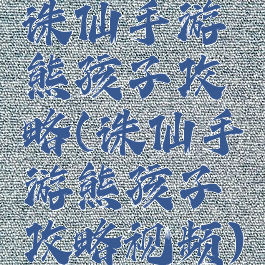 诛仙手游
熊孩子攻
略(诛仙手
游熊孩子
攻略视频)